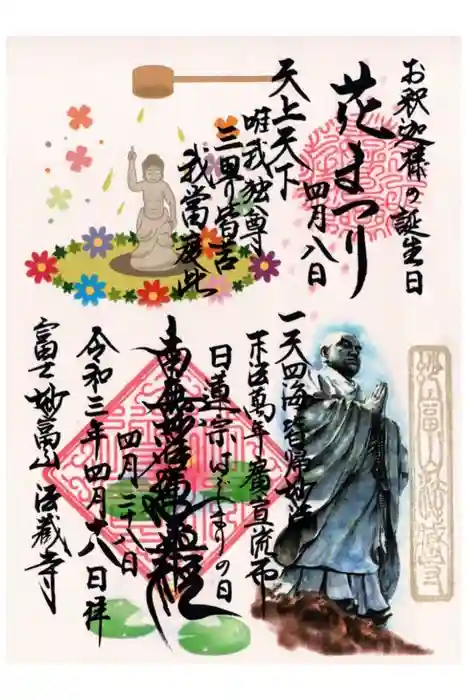 お釈迦様の誕生日
花まつり
四月八日
天上天下
唯我独尊
三界皆苦
我當度此
一天四海皆帰妙法
末法萬年廣宣流布
日蓮宗はじまりの日
南無妙法蓮華経
四月二十八日
令和三年四月十八日拝
富士妙富山法蔵寺